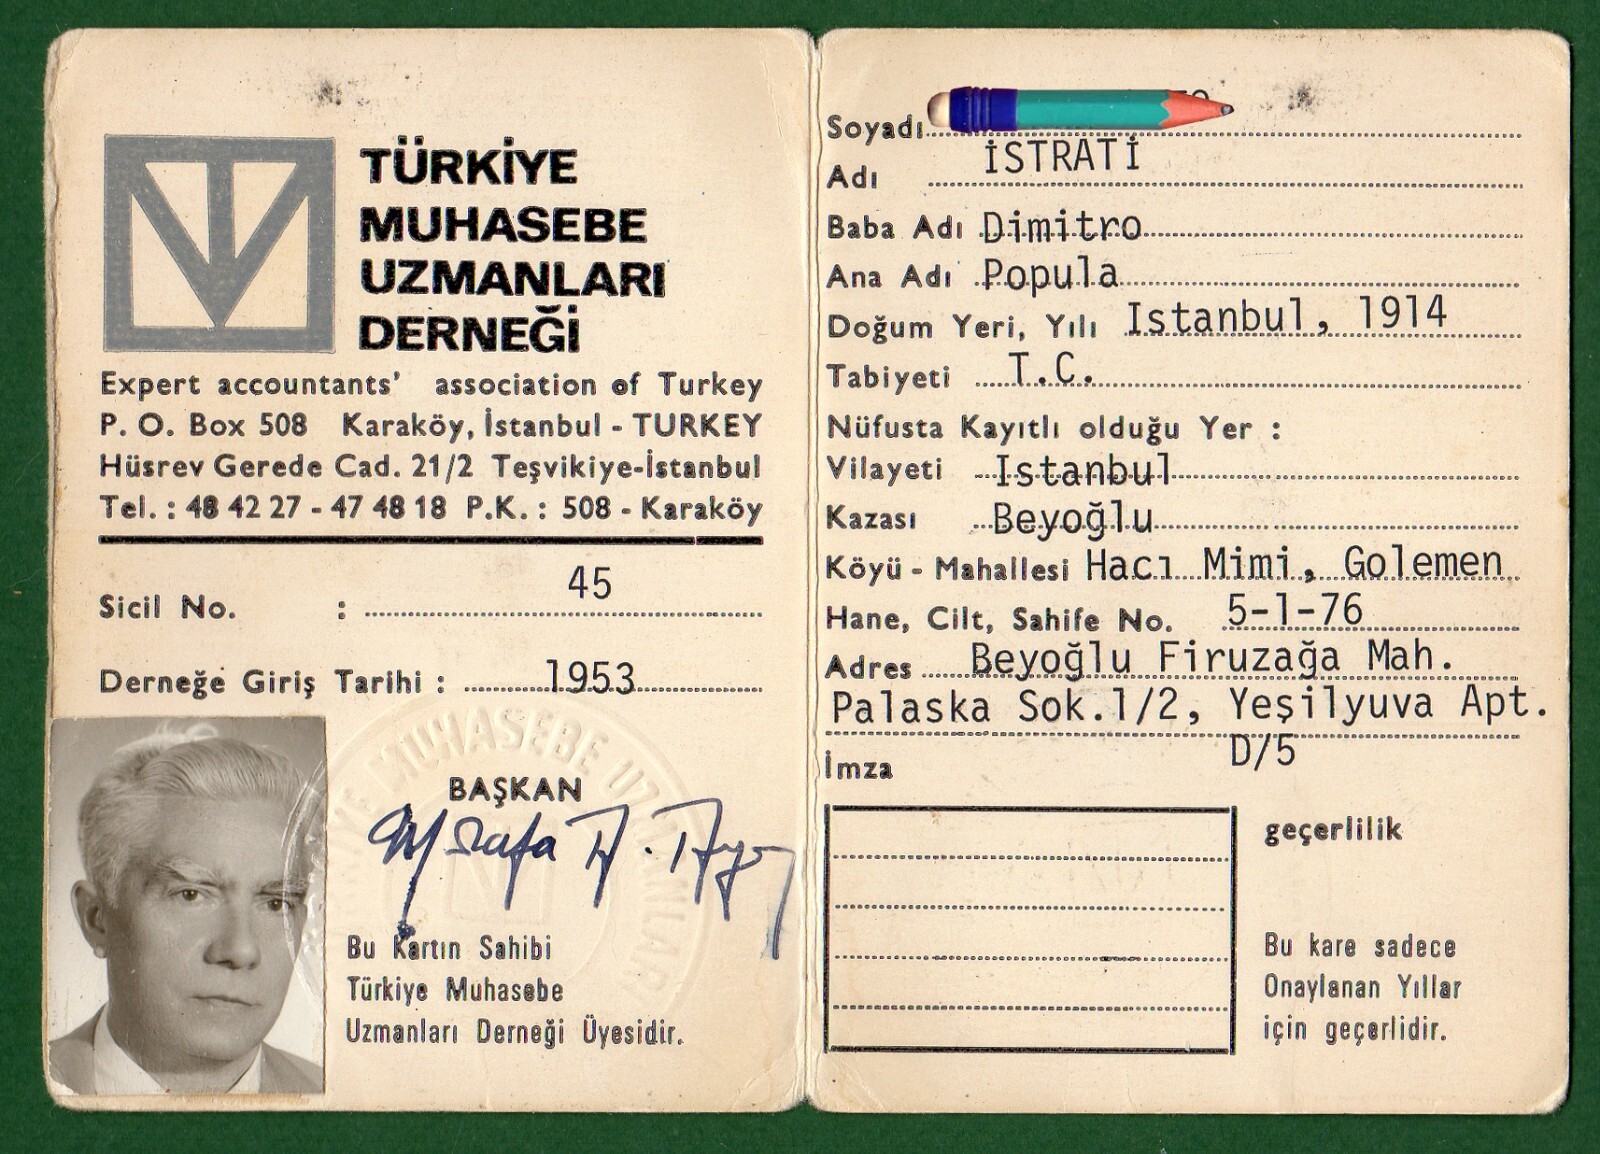 TÜRKİYE
MUHASEBE
UZMANLARI
DERNEĞİ
Expert accountants' association of Turkey
P. O. Box 508 Karaköy, İstanbul - TURKEY
Hüsrev Gerede Cad. 21/2 Teşvikiye-İstanbul
Tel. : 48 42 27 - 47 48 18 P.K. : 508 - Karaköy
Sicil No. : 45
Derneğe Giriş Tarihi : 1953
TÜRKİYE MUHASEBE UZMANLARI
BAŞKAN
Mustafa A. Aysan
Bu Kartın Sahibi
Türkiye Muhasebe
Uzmanları Derneği Üyesidir.
Soyadı
Adı İSTRATİ
Baba Adı Dimitro
Ana Adı Popula
Doğum Yeri, Yılı Istanbul, 1914
Tabiyeti T.C.
Nüfusta Kayıtlı olduğu Yer :
Vilayeti Istanbul
Kazası Beyoğlu
Köyü - Mahallesi Hacı Mimi, Golemen
Hane, Cilt, Sahife No. 5-1-76
Adres Beyoğlu Firuzağa Mah.
Palaska Sok.1/2, Yeşilyuva Apt.
D/5
İmza
geçerlilik
Bu kare sadece
Onaylanan Yıllar
için geçerlidir.